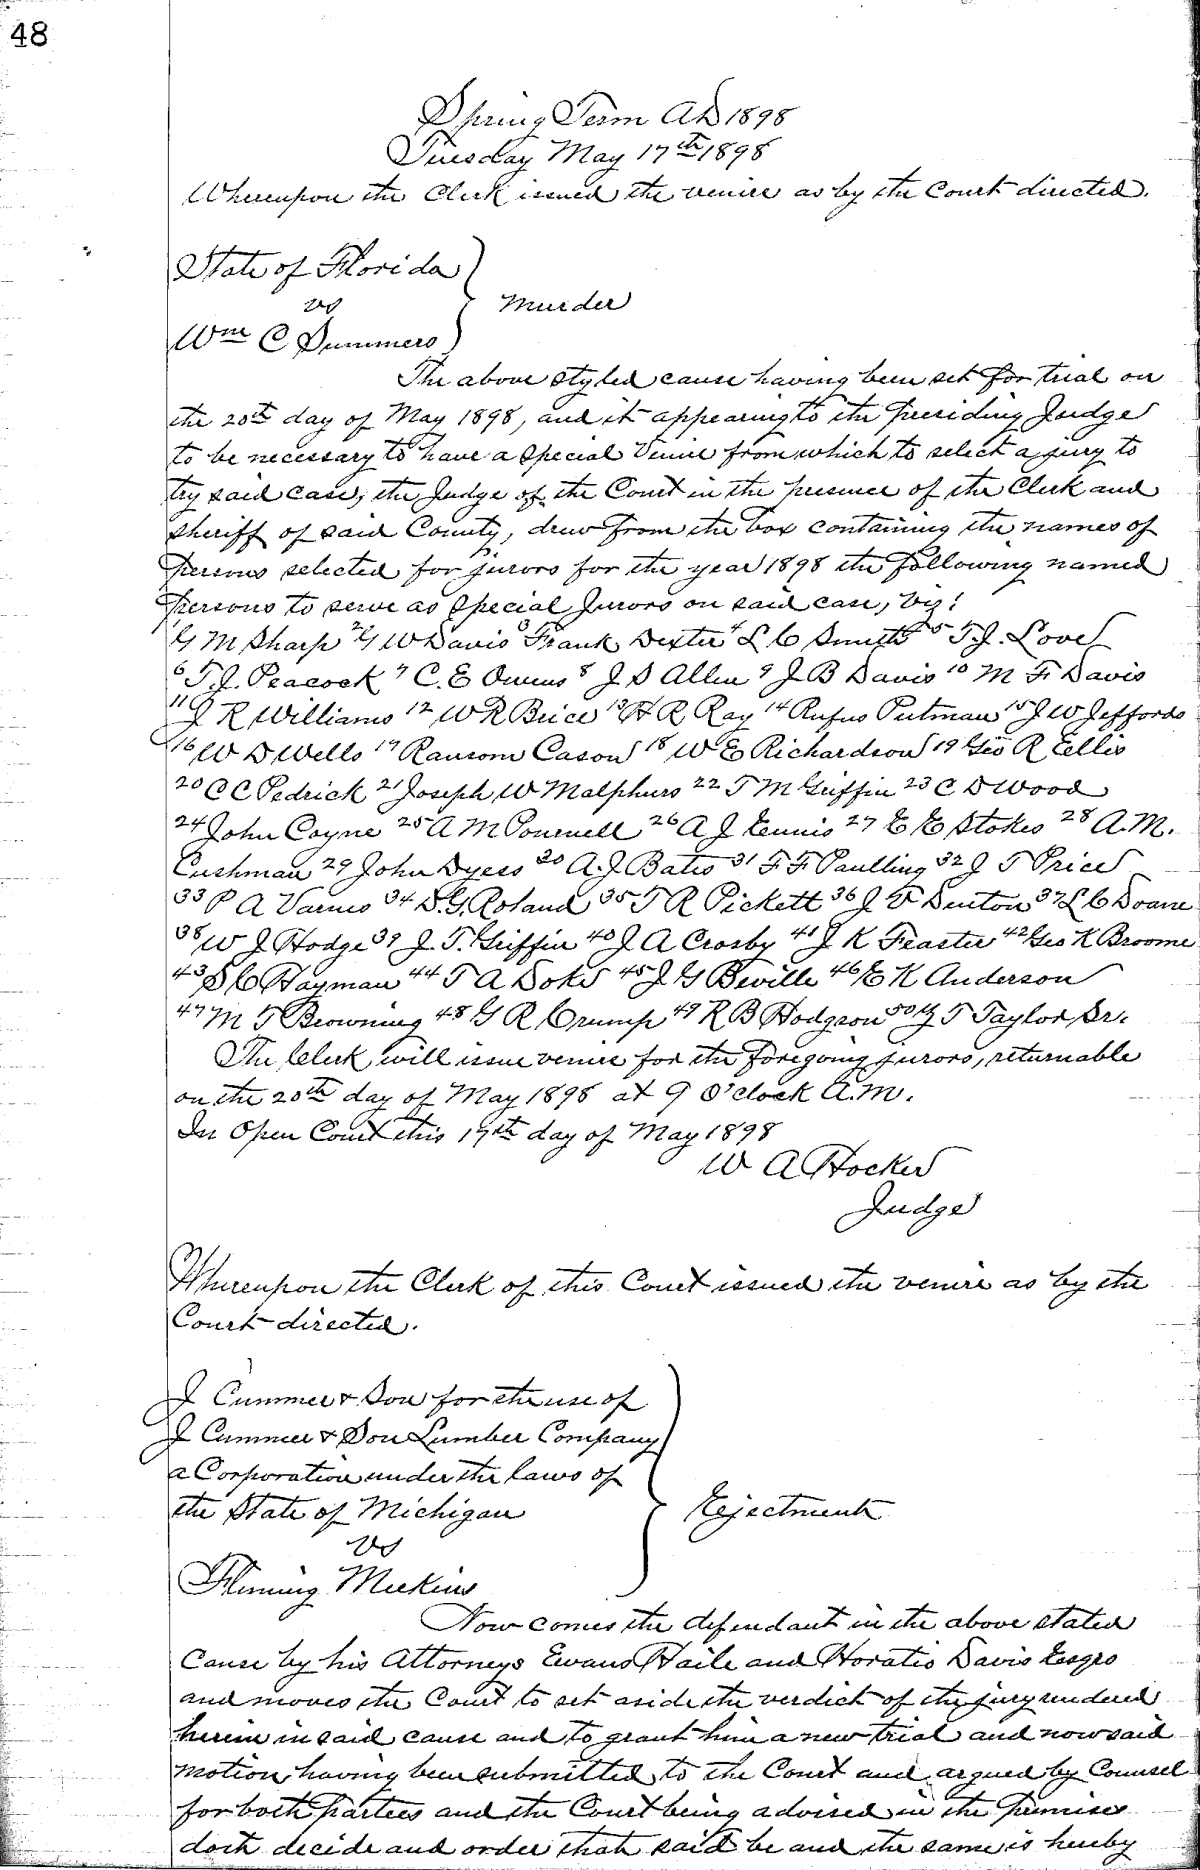 48
Spring Term AD 1898
Tuesday May 17th 1898
Whereupon the Clerk issued the venire as by the Court directed.
State of Florida
vs
Murder
Wm C Summers
The above styled cause having been set for trial on
the 20th day of May 1898, and it appearing to the Presiding Judge
to be necessary to have a special Venire from which to select a jury to
try said case, the Judge of the Court in the presence of the Clerk and
Sheriff of said County, drew from the box containing the names of
Persons selected for jurors for the year 1898 the following named
persons to serve as special Jurors on said case, viz:
G M Sharp 2 G W Davis 3 Frank Dexter 4 L C Smith 5 T. J. Love
6 T. J. Peacock 7 C. E Owens 8 J D Allen 9 J B Davis 10 M F Davis
11 J R Williams 12 W R Brice 13 H R Ray 14 Rufus Putman 15 J W Jeffords
16 W D Wells 17 Ransom Cason 18 W E Richardson 19 Geo R Ellis
20 C C Pedrick 21 Joseph W Malphurs 22 T M Griffin 23 C D Wood
24 John Coyne 25 A M 26 A J Tennis 27 E E Stokes 28 A. M.
Cushman 29 John Dyess 30 A. J. Bates 31 F. F. Paulling 32 J T Price
33 P A Varnes 34 D. G. Roland 35 T R Pickett 36 J F Denton 37 L C Doane
38 W J Hodge 39 J. T. Griffin 40 J A Crosby 41 J K Feaster 42 Geo K Broome
43 S C Hayman 44 T A Doke 45 J G Beville 46 E K Anderson
47 M T Browning 48 G R Crump 49 R B Hodgson 50 G T Taylor Sr.
The Clerk will issue venire for the foregoing jurors, returnable
on the 20th day of May 1898 at 9 O'clock A.M.
In Open Court this 17th day of May 1898
W A Hocker
Judge
Whereupon the Clerk of this Court issued the venire as by the
Court directed.
J Cummer & Son for the use of
J Cummer & Son Lumber Company
a Corporation under the laws of
the State of Michigan
Ejectment
vs
Fleming Meekins
Now comes the defendant in the above stated
Cause by his Attorneys Evans Haile and Horatio Davis Esqrs
and moves the Court to set aside the verdict of the jury rendered
herein in said cause and to grant him a new trial and now said
motion having been submitted to the Court and argued by Counsel
for both parties and the Court being advised in the Premises
doth decide and order that said be and the same is hereby